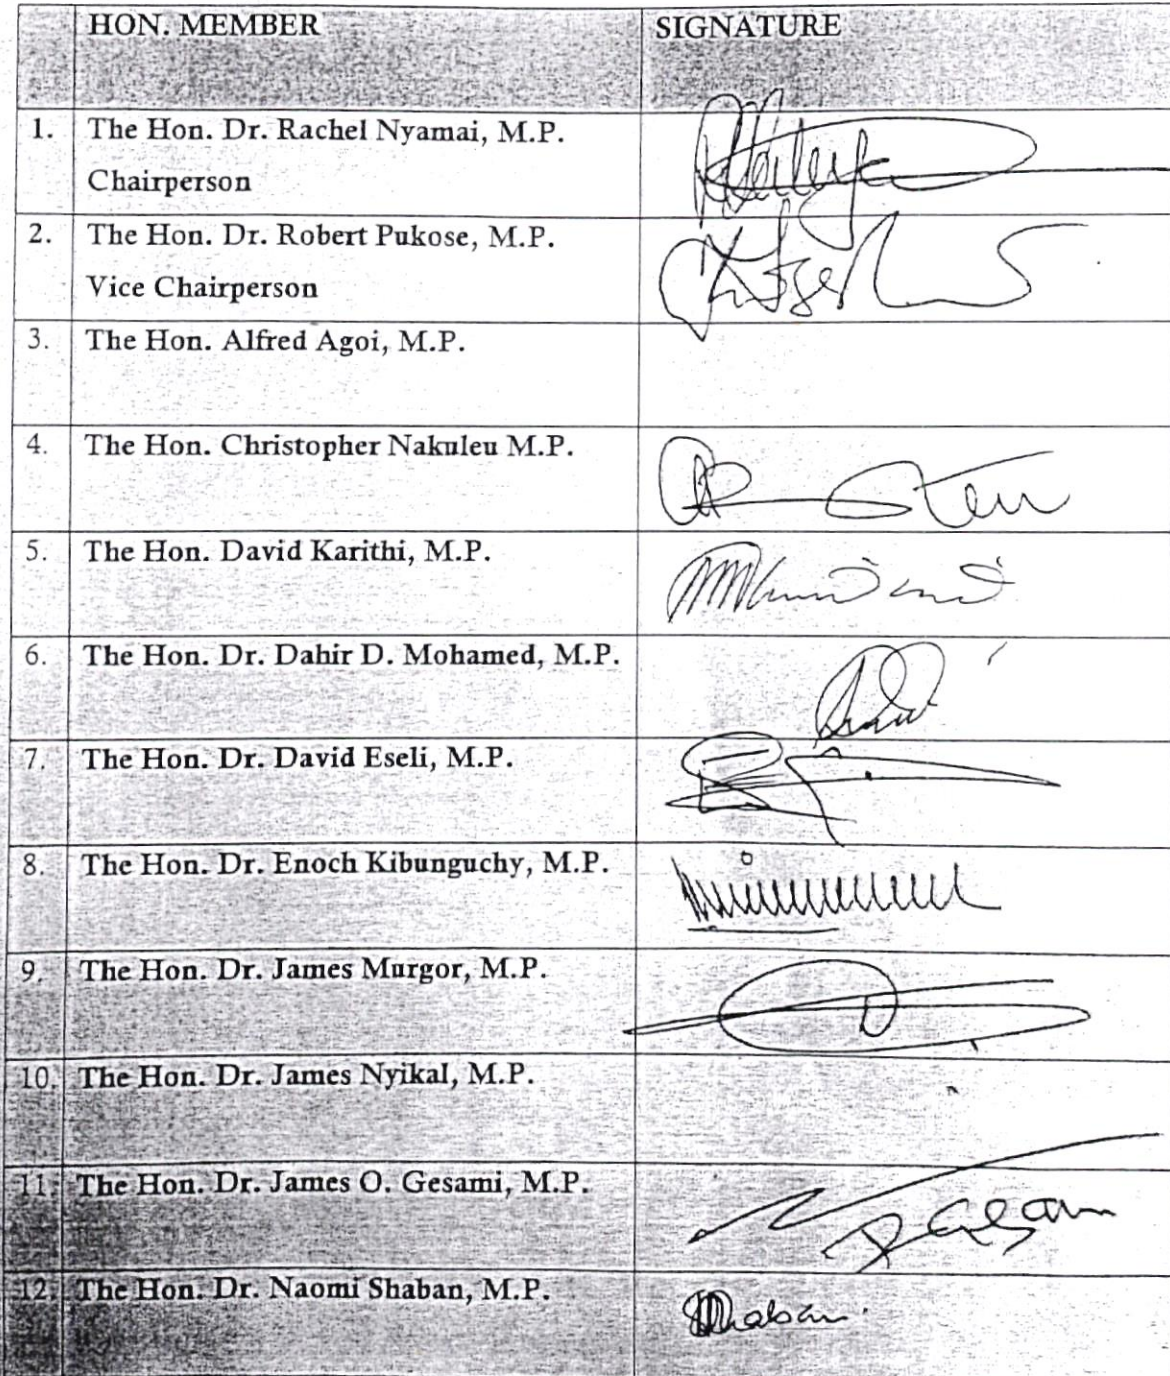 HON. MEMBER SIGNATURE
1. The Hon. Dr. Rachel Nyamai, M.P.
Chairperson
2. The Hon. Dr. Robert Pukose, M.P.
Vice Chairperson
3. The Hon. Alfred Agoi, M.P.
4. The Hon. Christopher Nakuleu M.P.
5. The Hon. David Karithi, M.P.
6. The Hon. Dr. Dahir D. Mohamed, M.P.
7. The Hon. Dr. David Eseli, M.P.
8. The Hon. Dr. Enoch Kibunguchy, M.P.
9. The Hon. Dr. James Murgor, M.P.
10. The Hon. Dr. James Nyikal, M.P.
11. The Hon. Dr. James O. Gesami, M.P.
12. The Hon. Dr. Naomi Shaban, M.P.